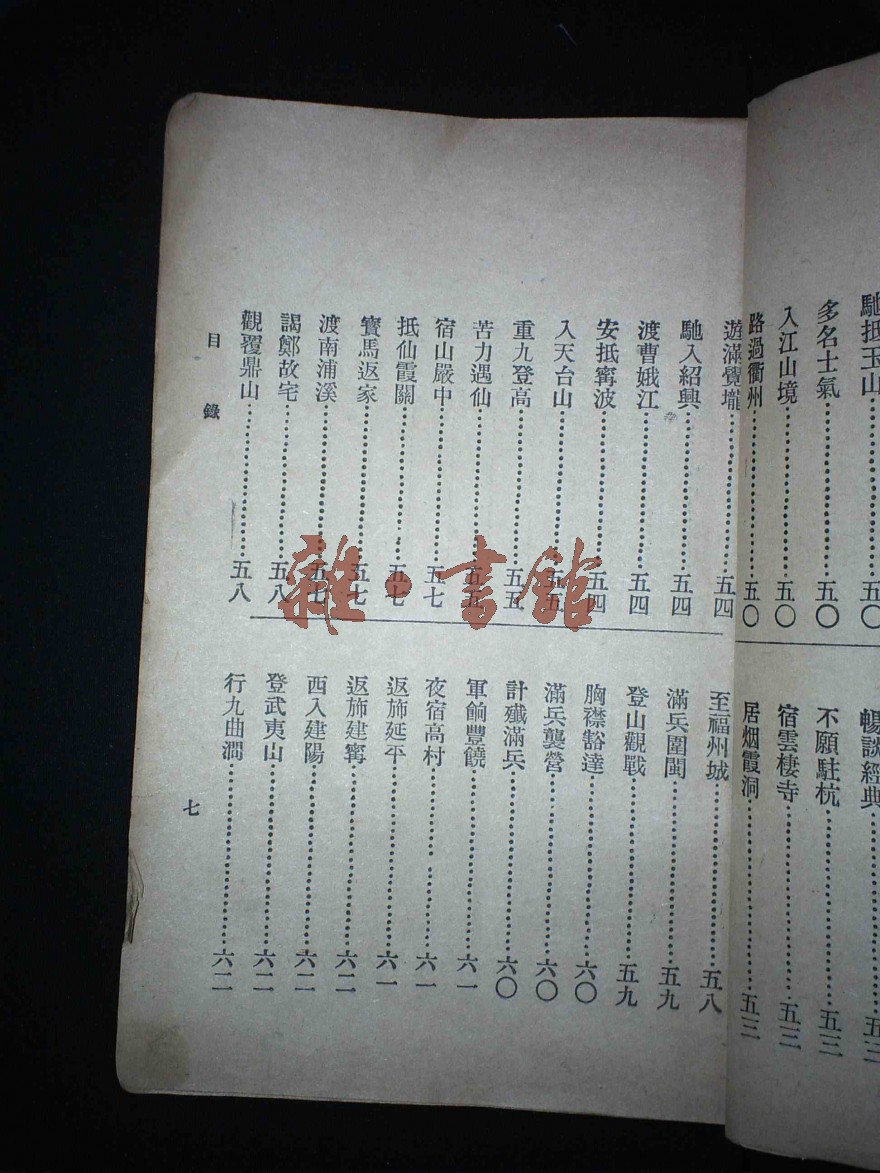 馳抵玉山⋯⋯五〇
多名士氣⋯⋯五〇
入江山境⋯⋯五〇
路過衢州⋯⋯五〇
暢談經典⋯⋯五三
不願駐杭⋯⋯五三
宿雲棲寺⋯⋯五三
居烟霞洞⋯⋯五三
遊滿覺壠⋯⋯五四
馳入紹興⋯⋯五四
渡曹娥江⋯⋯五四
安抵寗波⋯⋯五四
入天台山⋯⋯五五
重九登高⋯⋯五五
苦力遇仙⋯⋯五五
宿山嚴中⋯⋯五七
抵仙霞關⋯⋯五七
寳馬返家⋯⋯五七
渡南浦溪⋯⋯五七
謁鄭故宅⋯⋯五八
觀覆鼎山⋯⋯五八
至福州城⋯⋯五八
滿兵圍閩⋯⋯五九
登山觀戰⋯⋯五九
胸襟豁達⋯⋯六〇
滿兵襲營⋯⋯六〇
計殲滿兵⋯⋯六〇
軍餉豐饒⋯⋯六一
夜宿高村⋯⋯六一
返斾延平⋯⋯六一
返斾建寗⋯⋯六二
西入建陽⋯⋯六二
登武夷山⋯⋯六二
行九曲澗⋯⋯六二
目錄
七
雜·書館